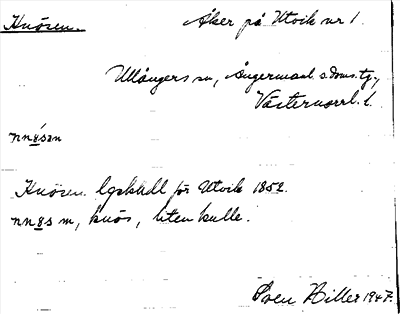 Knösen.
Åker på Utvik nr 1.
Ullångers sn, Ångermanl. s. doms. tg.,
Västernorrl. l.
Knösen. Lgsk. hdl för Utvik 1852.
m, knös, liten kulle.
Sven Biller 1947.